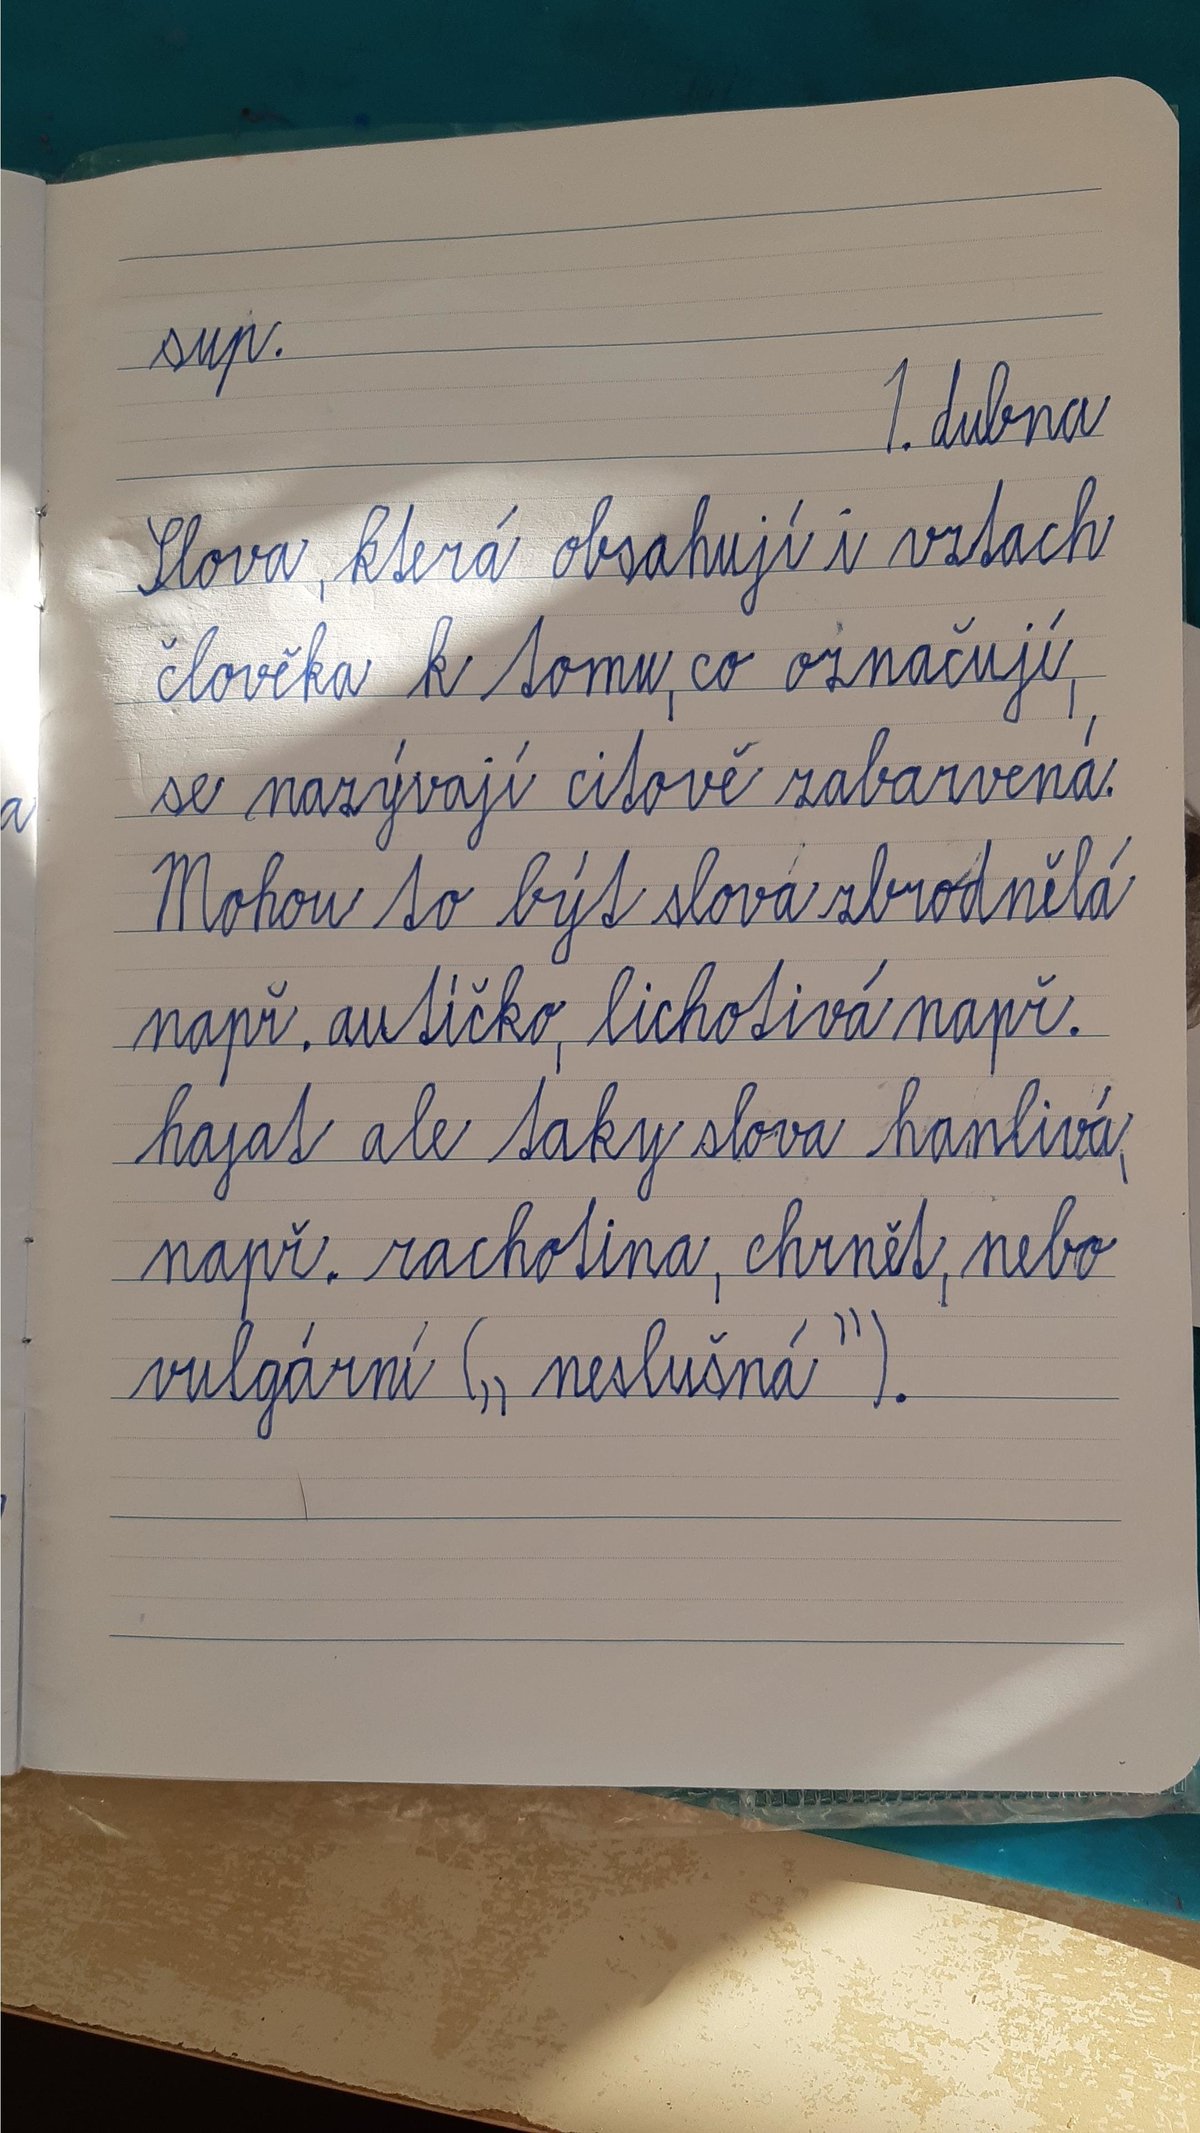 sup.
1. dubna
Slova, která obsahují i vztach
člověka k tomu, co označují,
se nazývají citově zabarvená.
Mohou to být slova zbrodnělá
např. autíčko, lichotivá např.
hajat ale taky slova hanlivá,
např. rachotina, chrnět, nebo
vulgární („neslušná").